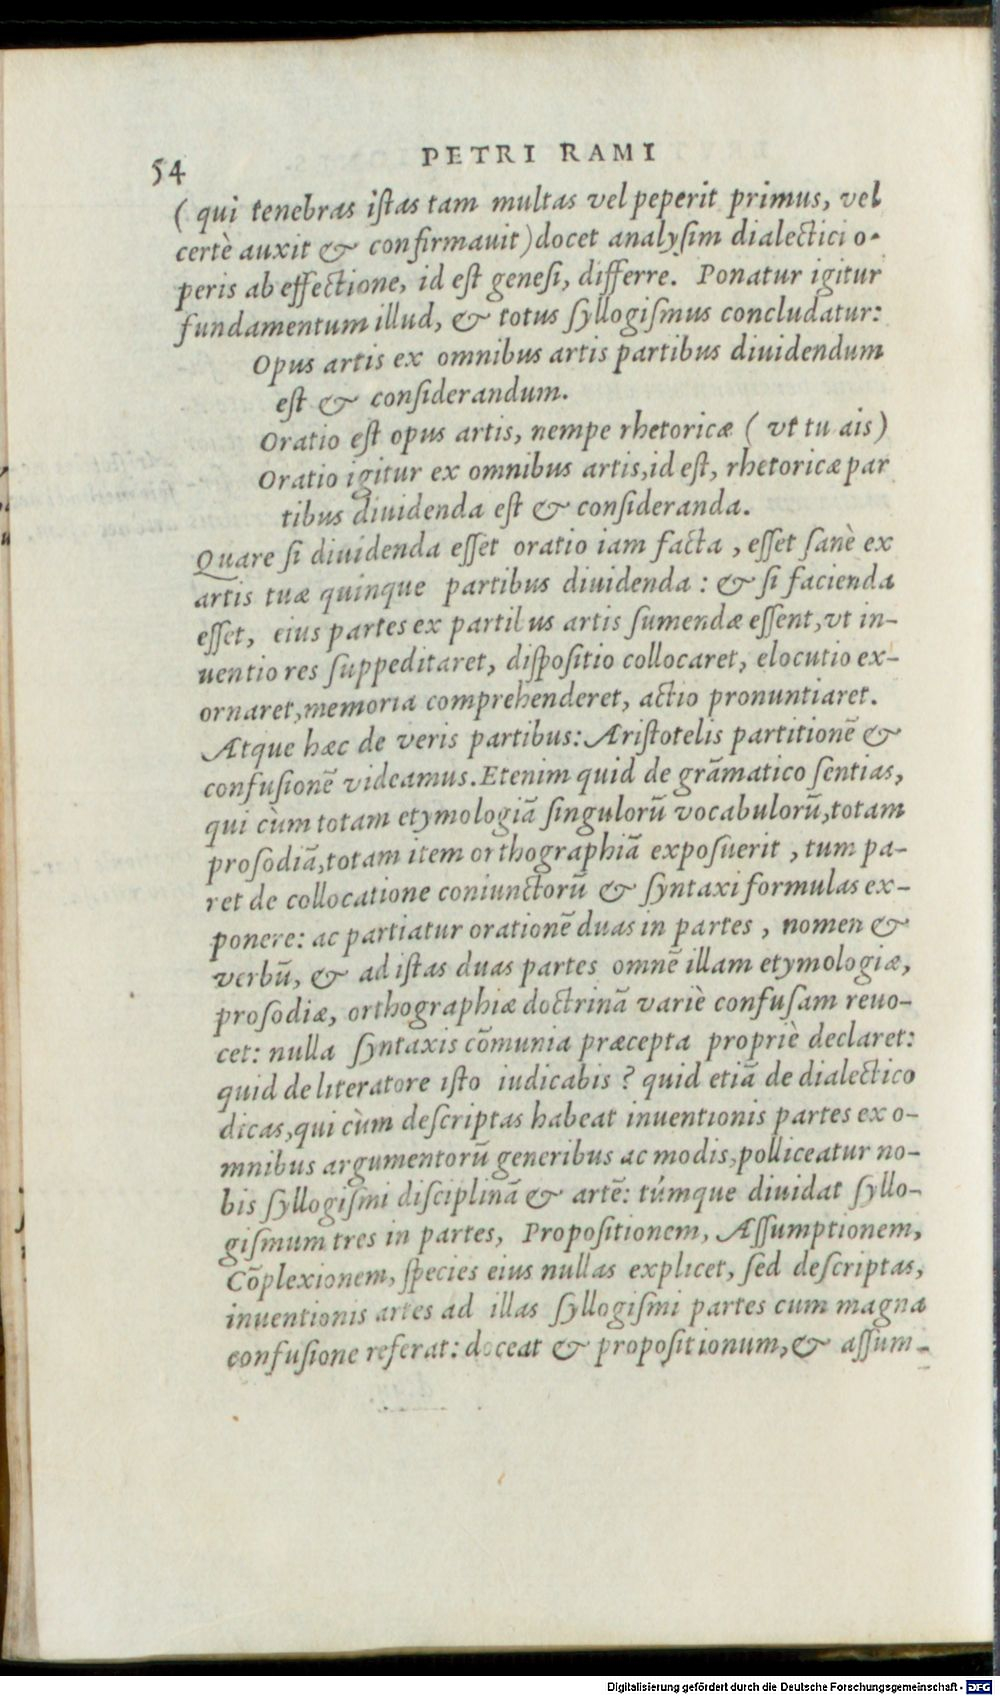 54 PETRI RAMI
( qui tenebras istas tam multas vel peperit primus, vel
certè auxit & confirmauit) docet analysim dialectici o-
peris ab effectione, id est genesi, differre. Ponatur igitur
fundamentum illud, & totus syllogismus concludatur:
Opus artis ex omnibus artis partibus diuidendum
est & considerandum.
Oratio est opus artis, nempe rhetoricæ ( vt tu ais)
Oratio igitur ex omnibus artis, id est, rhetoricæ par
tibus diuidenda est & consideranda.
Quare si diuidenda esset oratio iam facta , esset sanè ex
artis tuæ quinque partibus diuidenda : & si facienda
esset, eius partes ex partibus artis sumendæ essent, vt in-
uentio res suppeditaret, dispositio collocaret, elocutio ex-
ornaret, memoria comprehenderet, actio pronuntiaret.
Atque hæc de veris partibus: Aristotelis partitionē &
confusionē videamus. Etenim quid de grāmatico sentias,
qui cùm totam etymologiā singulorū vocabulorū, totam
prosodiā, totam item orthographiā exposuerit , tum pa-
ret de collocatione coniunctorū & syntaxi formulas ex-
ponere: ac partiatur orationē duas in partes , nomen &
verbū, & ad istas duas partes omnē illam etymologiæ,
prosodiæ, orthographiæ doctrinā variè confusam reuo-
cet: nulla syntaxis cōmunia præcepta propriè declaret:
quid de literatore isto iudicabis ? quid etiā de dialectico
dicas, qui cùm descriptas habeat inuentionis partes ex o-
mnibus argumentorū generibus ac modis, polliceatur no-
bis syllogismi disciplinā & artē: túmque diuidat syllo-
gismum tres in partes, Propositionem, Assumptionem,
Cōplexionem, species eius nullas explicet, sed descriptas,
inuentionis artes ad illas syllogismi partes cum magna
confusione referat: doceat & propositionum, & assum-
Digitalisierung gefördert durch die Deutsche Forschungsgemeinschaft - DFG